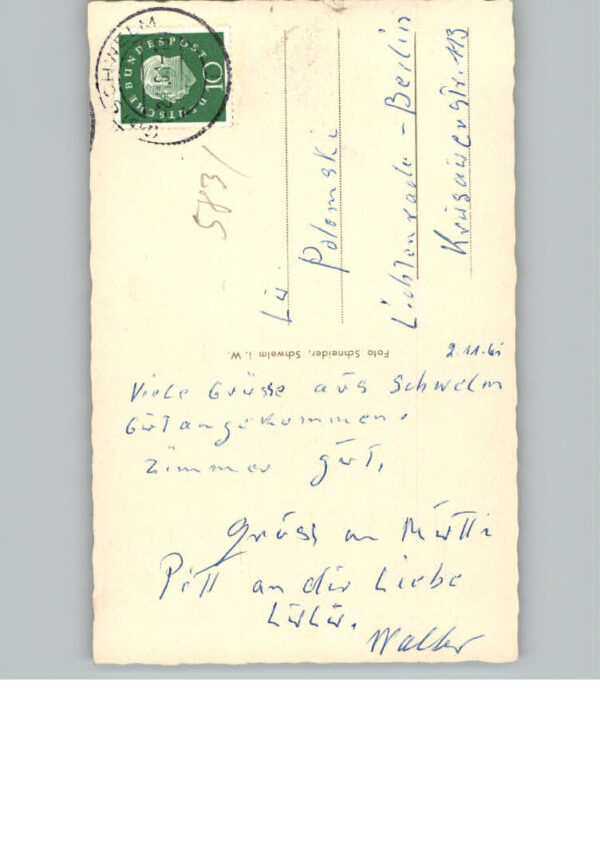 SCHWELM
DEUTSCHE BUNDESPOST
10
583/
Lu
Polomski
Lichtenrade-Berlin
Krügauerstr. 113
Foto Schneider, Schwelm i. W.
2.11.61
Viele Grüsse aus Schwelm
Gut angekommen.
Zimmer gut,
Gruss an Mutti
Pitt an dir Liebe
LuLu.
Walter